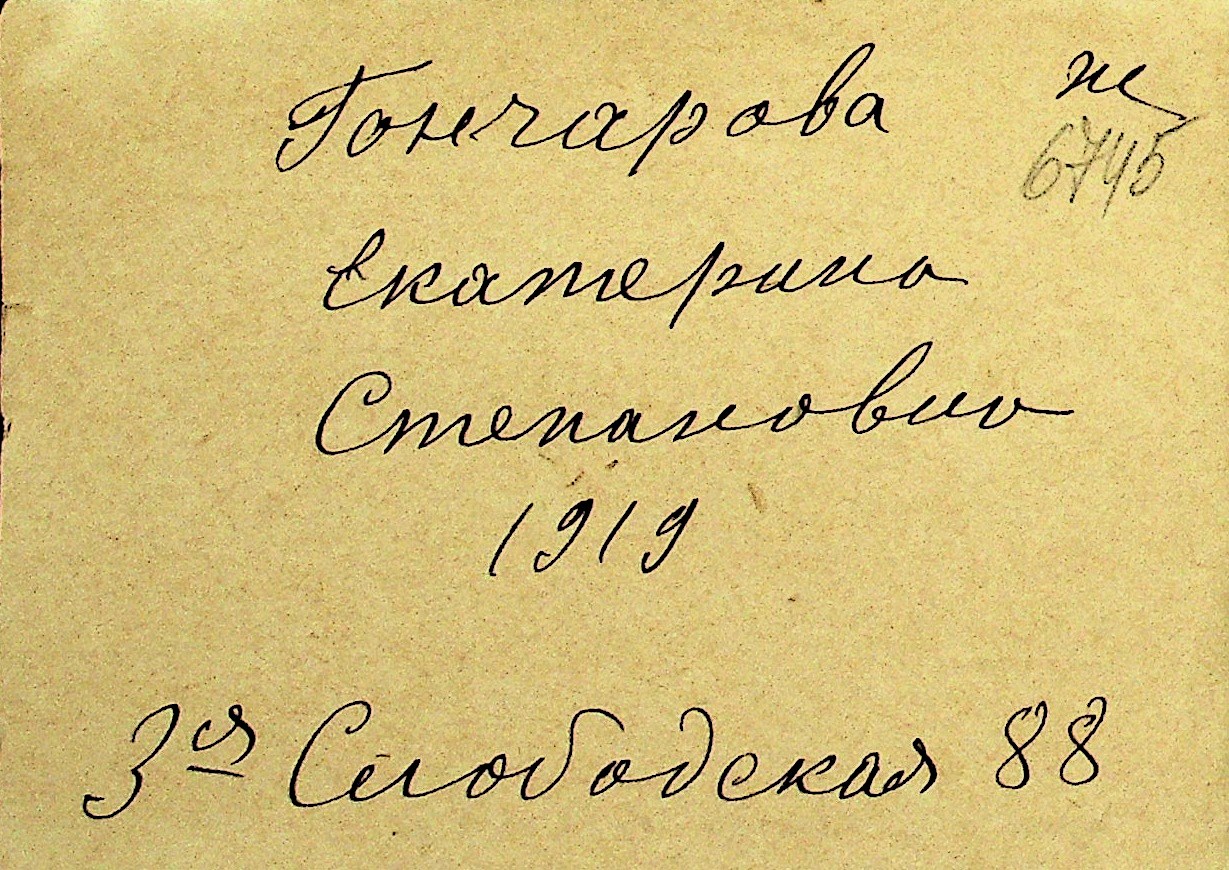 Гончарова ж
6745
Екатерина
Степановна
1919
3я Слободская 88